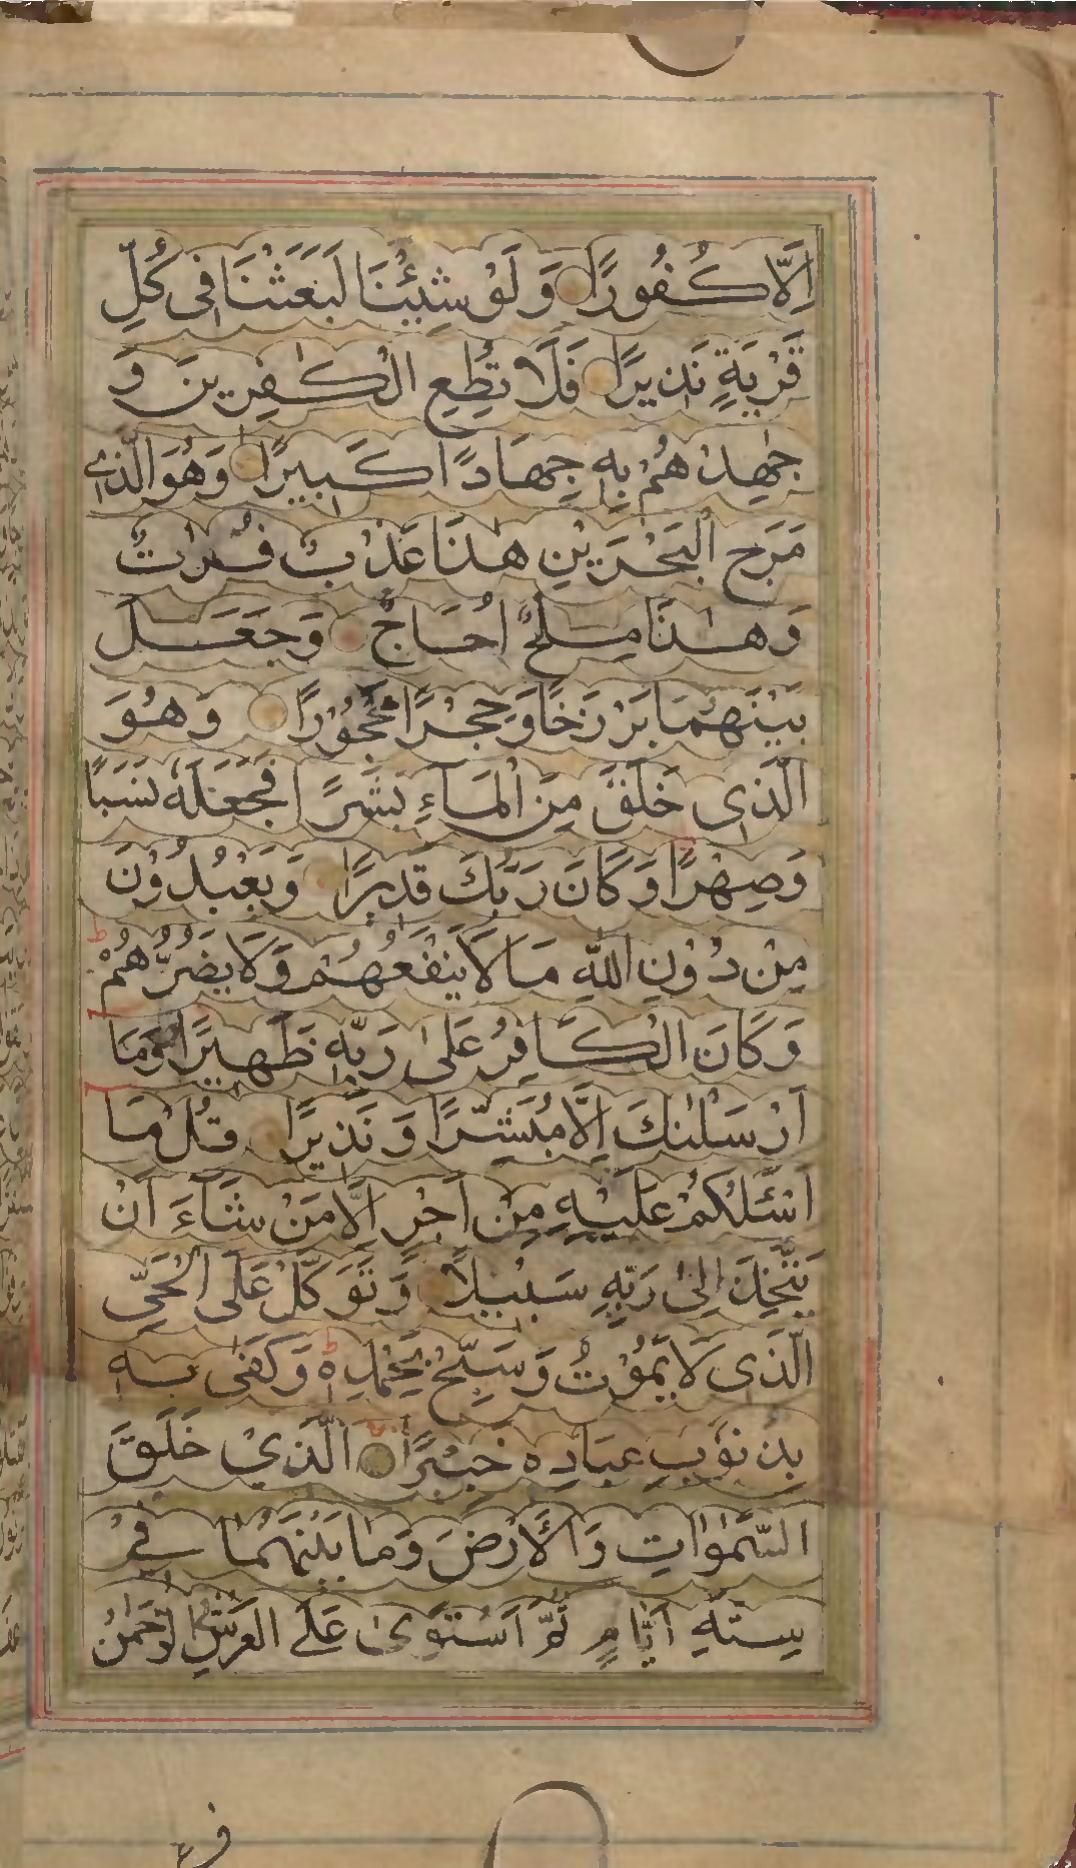 اِلَّا كُفُورًا وَلَوْ شِئْنَا لَبَعَثْنَا فِى كُلِّ
قَرْيَةٍ نَذِيرًا فَلَا تُطِعِ الْكٰفِرِينَ وَ
جٰهِدْهُمْ بِهٖ جِهَادًا كَبِيرًا وَهُوَ الَّذِى
مَرَجَ الْبَحْرَيْنِ هٰذَا عَذْبٌ فُرَاتٌ
وَهٰذَا مِلْحٌ اُجَاجٌ وَجَعَلَ
بَيْنَهُمَا بَرْزَخًا وَحِجْرًا مَحْجُورًا وَهُوَ
الَّذِى خَلَقَ مِنَ الْمَاءِ بَشَرًا فَجَعَلَهٗ نَسَبًا
وَصِهْرًا وَكَانَ رَبُّكَ قَدِيرًا وَيَعْبُدُوْنَ
مِنْ دُوْنِ اللّٰهِ مَا لَا يَنْفَعُهُمْ وَلَا يَضُرُّهُمْ ط
وَكَانَ الْكَافِرُ عَلٰى رَبِّهٖ ظَهِيرًا وَمَا
اَرْسَلْنٰكَ اِلَّا مُبَشِّرًا وَنَذِيرًا قُلْ مَا
اَسْئَلُكُمْ عَلَيْهِ مِنْ اَجْرٍ اِلَّا مَنْ شَاءَ اَنْ
يَتَّخِذَ اِلٰى رَبِّهٖ سَبِيْلًا وَتَوَكَّلْ عَلَى الْحَىِّ
الَّذِى لَا يَمُوْتُ وَسَبِّحْ بِحَمْدِهٖ ط وَكَفٰى بِهٖ
بِذُنُوْبِ عِبَادِهٖ خَبِيْرًا الَّذِيْ خَلَقَ
السَّمٰوَاتِ وَالْاَرْضَ وَمَا بَيْنَهُمَا فِيْ
سِتَّةِ اَيَّامٍ ثُمَّ اسْتَوٰى عَلَى الْعَرْشِ الرَّحْمٰنُ